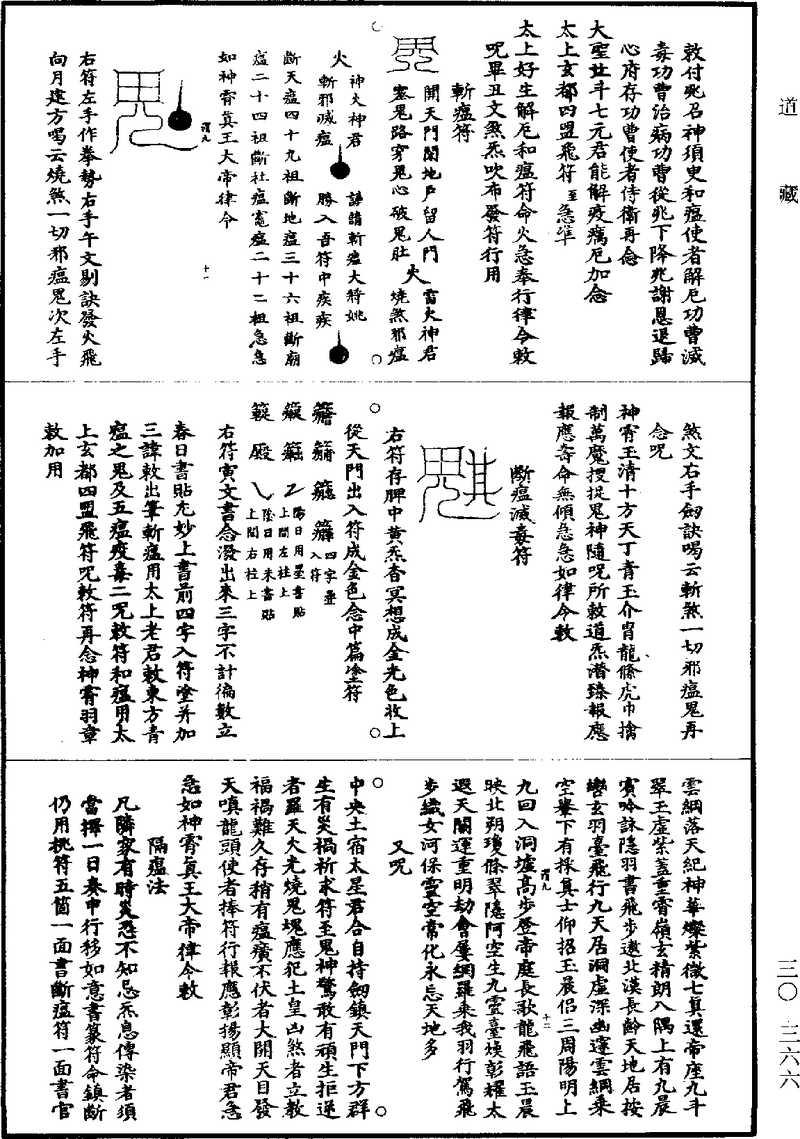 道藏
三〇—三六六
敕付兆召神須臾和瘟使者解厄功曹滅
毒功曹治病功曹從兆下降兆謝恩退歸
心府存功曹使者侍衛再念
大聖北斗七元君能解疫癘厄加念
太上玄都四盟飛符至急準
太上好生解厄和瘟符命火急奉行律令敕
咒畢丑文煞炁吹布發符行用
斬瘟符
開天門閉地戶留人門
塞鬼路穿鬼心破鬼肚
火
雷火神君
燒煞邪瘟
火
神火神君
斬邪滅瘟
謹請斬瘟大將姚
勝入吾符中疾疾
斷天瘟四十九祖斷地瘟三十六祖斷廟
瘟二十四祖斷社瘟竈瘟二十二祖急急
如神霄真王大帝律令
渭九
十一
右符左手作拳勢右手午文剔訣發火飛
向月建方喝云燒煞一切邪瘟鬼次左手
煞文右手劍訣喝云斬煞一切邪瘟鬼再
念咒
神霄玉清十方天丁青玉介胄龍絛虎巾擒
制萬魔搜捉鬼神隨咒所敕道炁潛臻報應
報應奇命無傾急急如律令敕
斷瘟滅毒符
右符存脾中黃炁杳冥想成金光色收上
從天門出入符成金色念中篇塗符
四字重
入符
陽日用墨書貼
上間左柱上
陰日用朱書貼
上間右柱上
右符寅文書念潑出來三字不計徧數立
春日書貼尤妙上書前四字入符塗并加
三諱敕出筆斬瘟用太上老君敕東方青
瘟之鬼及五瘟疫毒二咒敕符和瘟用太
上玄都四盟飛符咒敕符再念神霄羽章
敕加用
雲網落天紀神華燦紫微七真還帝座九斗
翠玉虛紫蓋重霄嶺玄精朗八隅上有九晨
賓吟詠隱羽書飛步遨北漢長齡天地居按
轡玄羽臺飛行九天居洞虛深幽邃雲網乘
空舉下有採真士仰招玉晨侶三周陽明上
渭九
十二
九回入洞墟高步登帝庭長歌龍飛語玉晨
映北朔瓊絛翠隱阿空生九靈臺煥彰耀太
遐天關運重明劫會屢網羅乘我羽行駕飛
步織女河保靈空常化永忘天地多
又咒
中央土宿太星君合自持劍鎮天門下方群
生有災禍祈求符至鬼神驚敢有頑生拒逆
者羅天大光燒鬼塊應犯土皇凶煞者立教
福禍難久存稍有瘟癀不伏者大開天目發
天嗔龍頭使者捧符行報應彰揚顯帝君急
急如神霄真王大帝律令敕
隔瘟法
凡隣家有時災恐不知忌炁息傳染者須
當擇一日奏申行移如意書篆符命鎮斷
仍用桃符五箇一面書斷瘟符一面書官